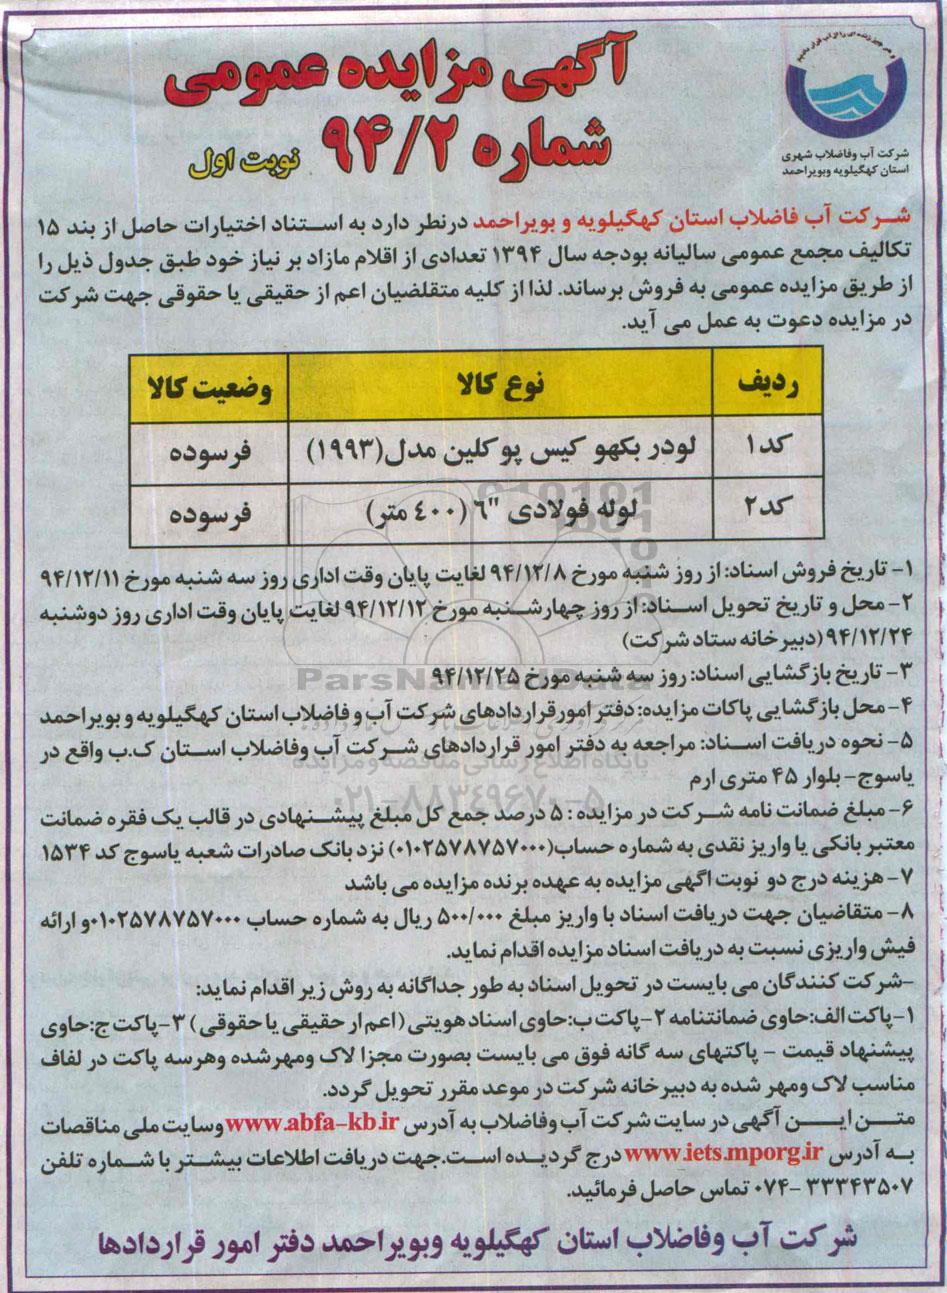 و من الماء کل شیء حی
شرکت آب وفاضلاب شهری
استان کهگیلویه وبویراحمد
آگهی مزایده عمومی
شماره ۹۴/۲
نوبت اول
شرکت آب فاضلاب استان کهگیلویه و بویراحمد درنظر دارد به استناد اختیارات حاصل از بند ۱۵
تکالیف مجمع عمومی سالیانه بودجه سال ۱۳۹۴ تعدادی از اقلام مازاد بر نیاز خود طبق جدول ذیل را
از طریق مزایده عمومی به فروش برساند. لذا از کلیه متقلضیان اعم از حقیقی یا حقوقی جهت شرکت
در مزایده دعوت به عمل می آید.
ردیف نوع کالا وضعیت کالا
کد۱ لودر بکهو کیس پوکلین مدل(۱۹۹۳) فرسوده
کد۲ لوله فولادی "۶ (۴۰۰ متر) فرسوده
۱- تاریخ فروش اسناد: از روز شنبه مورخ ۹۴/۱۲/۸ لغایت پایان وقت اداری روز سه شنبه مورخ ۹۴/۱۲/۱۱
۲- محل و تاریخ تحویل اسناد: از روز چهارشنبه مورخ ۹۴/۱۲/۱۲ لغایت پایان وقت اداری روز دوشنبه
۹۴/۱۲/۲۴ (دبیرخانه ستاد شرکت)
۳- تاریخ بازگشایی اسناد: روز سه شنبه مورخ ۹۴/۱۲/۲۵
ParsNamadData
۴- محل بازگشایی پاکات مزایده: دفتر امورقراردادهای شرکت آب و فاضلاب استان کهگیلویه و بویراحمد
۵- نحوه دریافت اسناد: مراجعه به دفتر امور قراردادهای شرکت آب وفاضلاب استان ک.ب واقع در
پایگاه اطلاع رسانی مناقصه و مزایده
یاسوج- بلوار ۴۵ متری ارم
۰۲۱-۸۸۳۴۹۶۷۰-۵
۶- مبلغ ضمانت نامه شرکت در مزایده : ۵ درصد جمع کل مبلغ پیشنهادی در قالب یک فقره ضمانت
معتبر بانکی یا واریز نقدی به شماره حساب(۰۱۰۲۵۷۸۷۵۷۰۰۰) نزد بانک صادرات شعبه یاسوج کد ۱۵۳۴
۷- هزینه درج دو نوبت اگهی مزایده به عهده برنده مزایده می باشد
۸- متقاضیان جهت دریافت اسناد با واریز مبلغ ۵۰۰/۰۰۰ ریال به شماره حساب ۰۱۰۲۵۷۸۷۵۷۰۰۰و ارائه
فیش واریزی نسبت به دریافت اسناد مزایده اقدام نماید.
-شرکت کنندگان می بایست در تحویل اسناد به طور جداگانه به روش زیر اقدام نماید:
۱-پاکت الف:حاوی ضمانتنامه ۲-پاکت ب:حاوی اسناد هویتی (اعم ار حقیقی یا حقوقی) ۳-پاکت ج:حاوی
پیشنهاد قیمت - پاکتهای سه گانه فوق می بایست بصورت مجزا لاک ومهرشده وهرسه پاکت در لفاف
مناسب لاک ومهر شده به دبیرخانه شرکت در موعد مقرر تحویل گردد.
متن این آگهی در سایت شرکت آب وفاضلاب به آدرس www.abfa-kb.ir وسایت ملی مناقصات
به آدرس www.iets.mporg.ir درج گردیده است.جهت دریافت اطلاعات بیشتر با شماره تلفن
۰۷۴-۳۳۳۴۳۵۰۷ تماس حاصل فرمائید.
شرکت آب وفاضلاب استان کهگیلویه وبویراحمد دفتر امور قراردادها